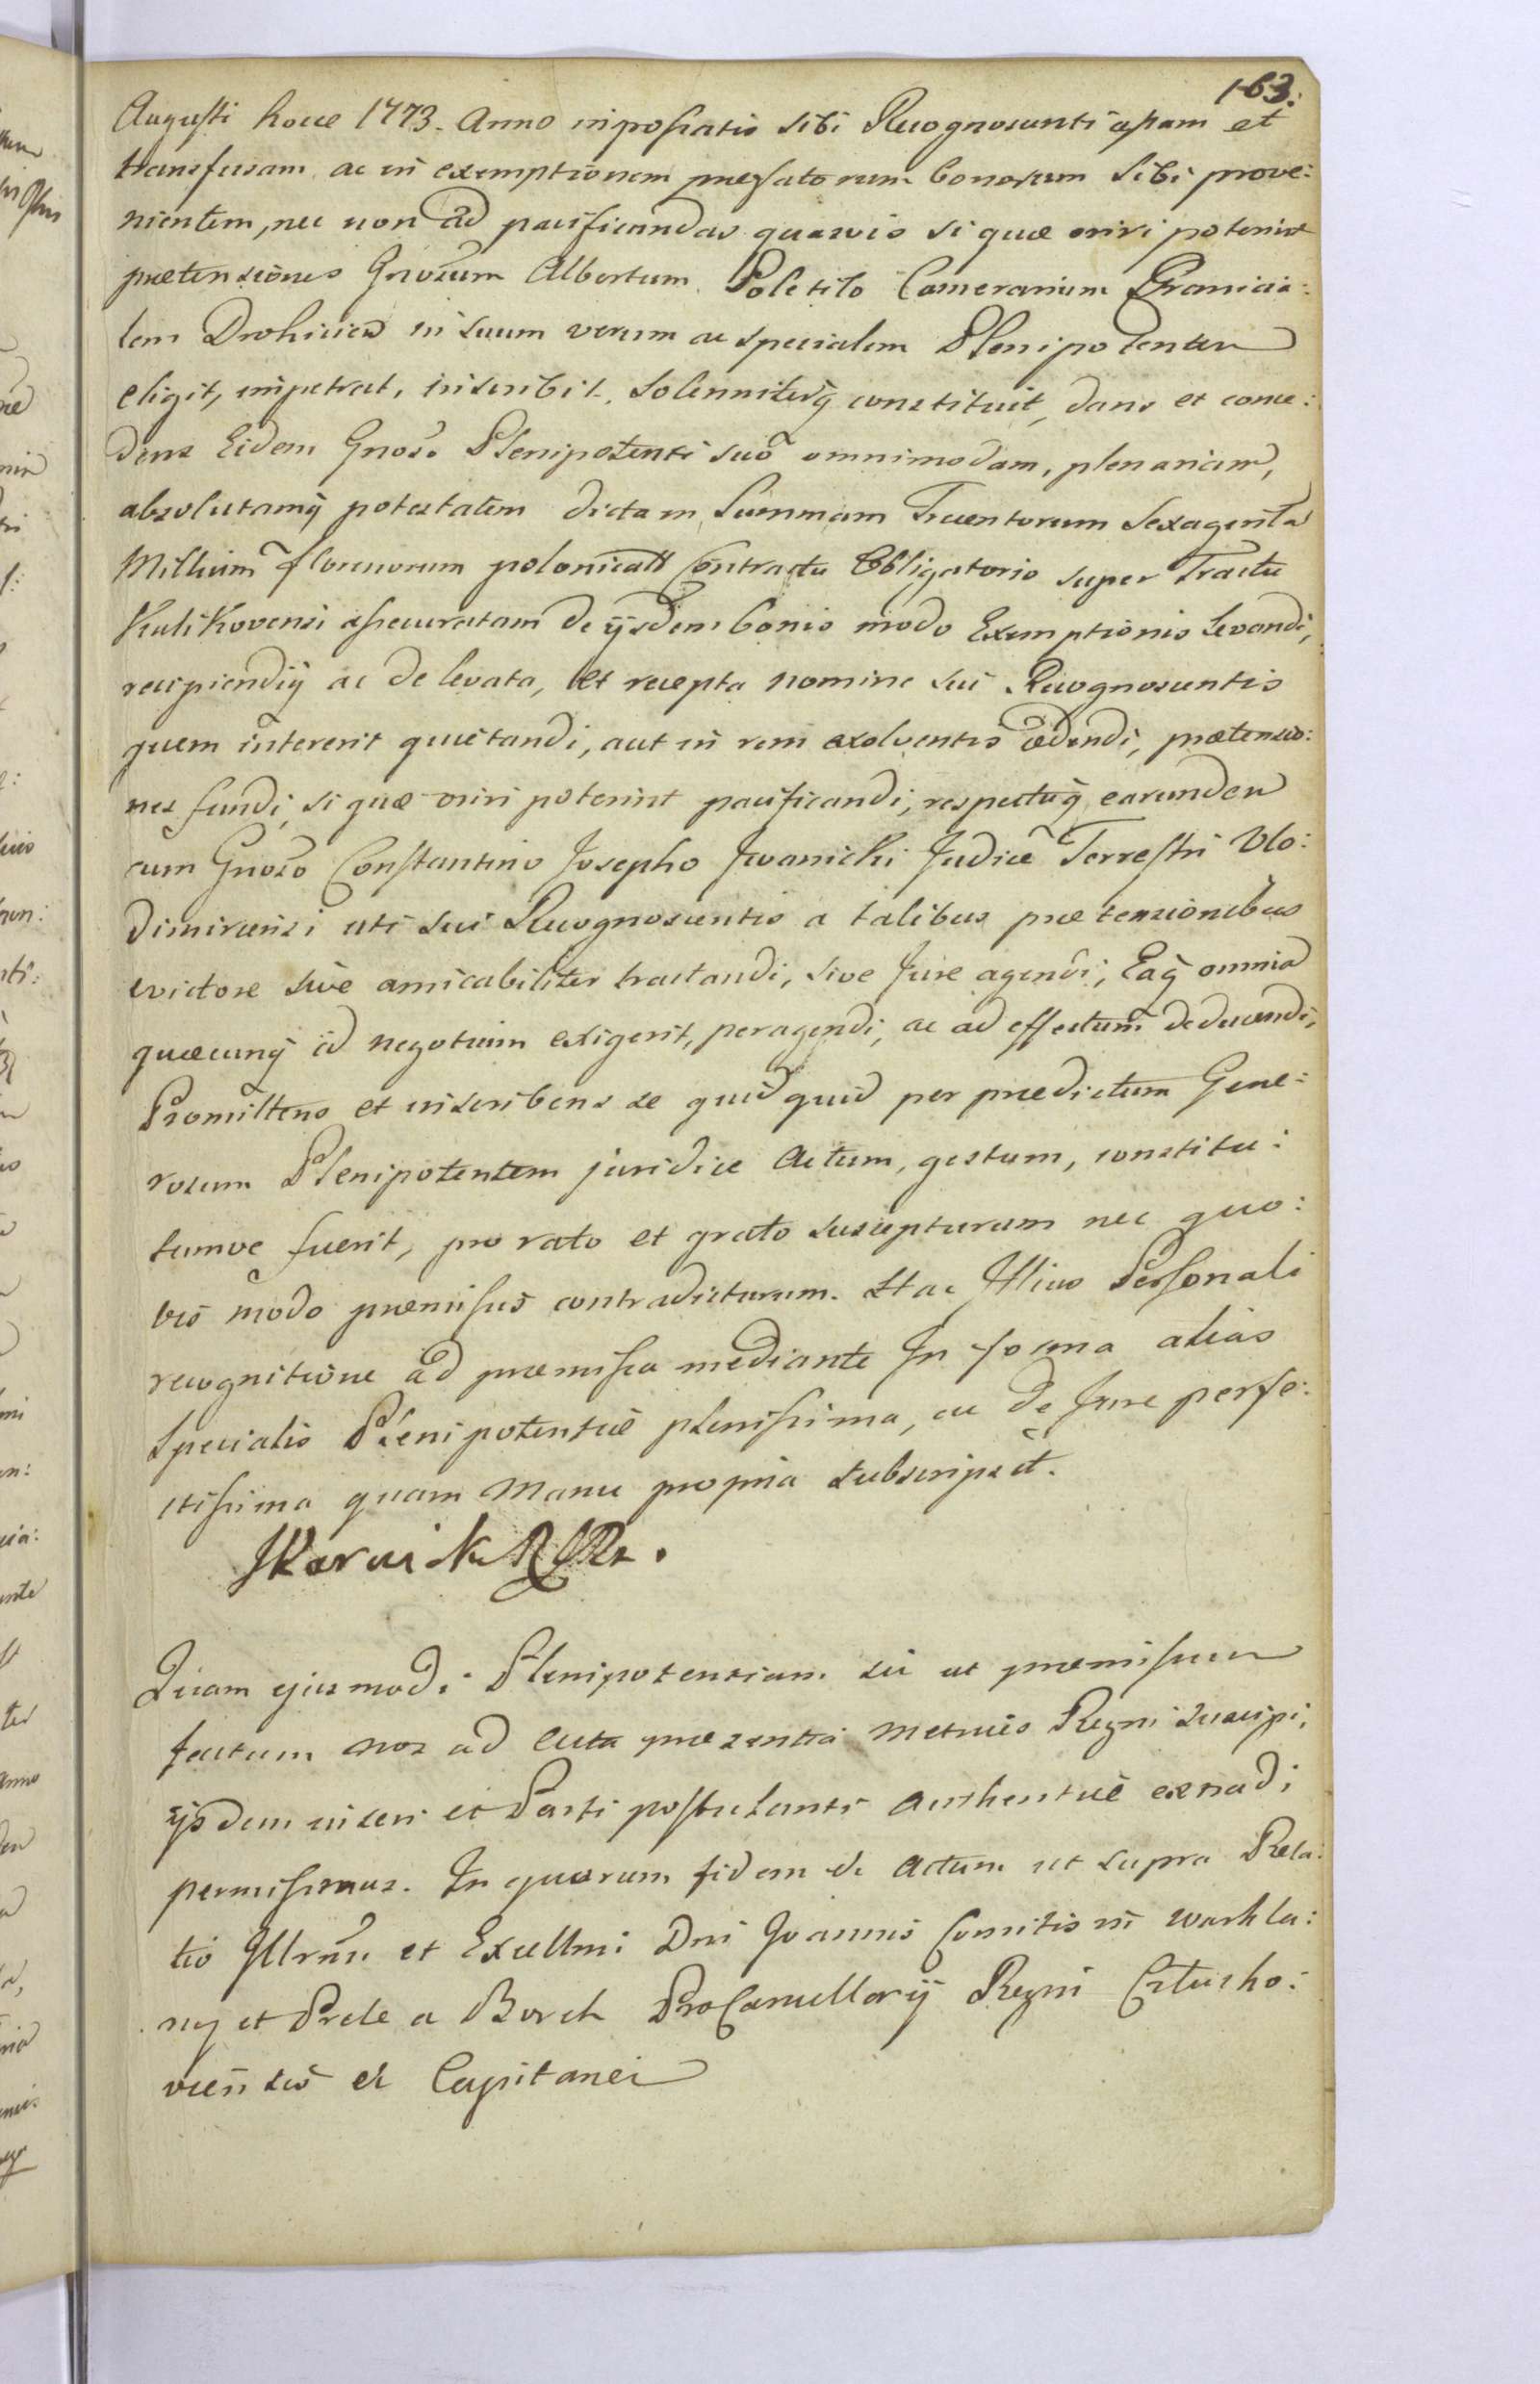 163.
Augusti hocce 1773. Anno inpossatis sibi Recognoscenti apam et
transfusam ac in exemptionem præfatorum bonorum sibi prove:
nientem, nec non ad pacificandas quasvis si quæ oriri poterint
prætensiones Gnosum Albertum Poletilo Camerarium Granicia:
lem Drohicien in suum verum ac specialem Plenipotenten
eligit, impetrat, inscribit, solenniterq constituit, dans et conce:
dens Eidem Gnoso Plenipotenti suo omnimodam, plenariam,
absolutamq potestatem dictam Summam Trecentorum Sexaginta
Millium florenorum polonicall Contractu Obligatorio super Tractu
Kulikovensi assecuratam de ijsdem bonis modo Exemptionis levandi,
recipiendiq ac de levata, et recepta nomine sui Recognoscentis
quem intererit quietandi, aut in rem exolventis cedendi, prætensio:
nes fundi, si quæ oriri poterint pacificandi, respectuq earunden
cum Gnoso Constantino Josepho Iwanicki Judice Terrestri Vlo:
dimiriensi uti sui Recognoscentis a talibus prætensionibus
evictore sive amicabiliter tractandi, sive Jure agendi, Eaq omnia
quæcunq id negotium exigerit, peragendi, ac ad effectum deducendi,
Promittens et inscribens se quidquid per prædictum Gene:
rosum Plenipotentem juridice actum, gestum, constitu:
tumve fuerit, pro rato et grato suscepturum nec quo:
vis modo præmissis contradicturum. Hac Illius Personali
recognitione ad præmissa mediante In forma alias
specialis Plenipotentiæ plenissima, ac de Jure perfe:
ctissima quam Manu propria subscripsit.
Quam ejusmodi Plenipotentiam sic ut præmissum
factum nos ad Acta præsentia Metrices Regni suscipi,
ijsdem inseri et Parti postulanti authentice extradi
permissimus. In quorum fidem etc Actum ut supra Rela:
tio Illrmi et Excellmi Dni Joannis Comitis in Warkla:
ny et Prele a Borch ProCancellarij Regni Cztucho:
viensis etc Capitanei